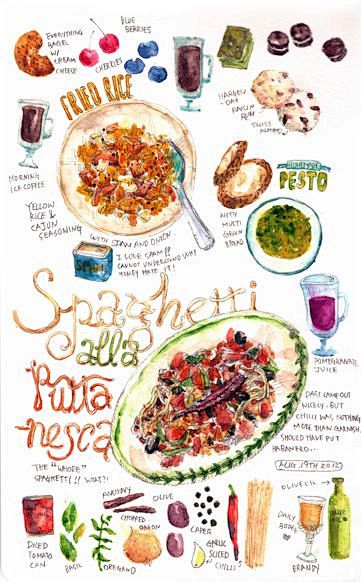 EVERYTHING
BAGEL
W/
CREAM
CHEESE
CHERRIES
BLUE
BERRIES
MORNING
ICE COFFEE
FRIED RICE
YELLOW
RICE &
CAJUN
SEASONING
WITH SPAM AND ONION
I LOVE SPAM!!
CANNOT UNDERSTAND WHY
HATE IT!
SPAM
RAISIN
RUM
SWISS
ALMOND
HOMEMADE
PESTO
WITH
MULTI
GRAIN
BREAD
POMEGRANATE
JUICE
Spaghetti
alla
Putta
nesca
THE "WHORE"
SPAGHETTI!! WHAT?!
CAME OUT
NICELY. BUT
CHILLI WAS NOTHING
MORE THAN GARNISH.
SHOULD HAVE PUT
HABANERO..
AUG. 19TH 2012
DICED
TOMATO
CAN
BASIL
OREGANO
ANCHOVY
CHOPPED
ONION
OLIVE
CAPER
GARLIC
SLICED
CHILLI
OLIVE OIL
DAILY
BRANDY